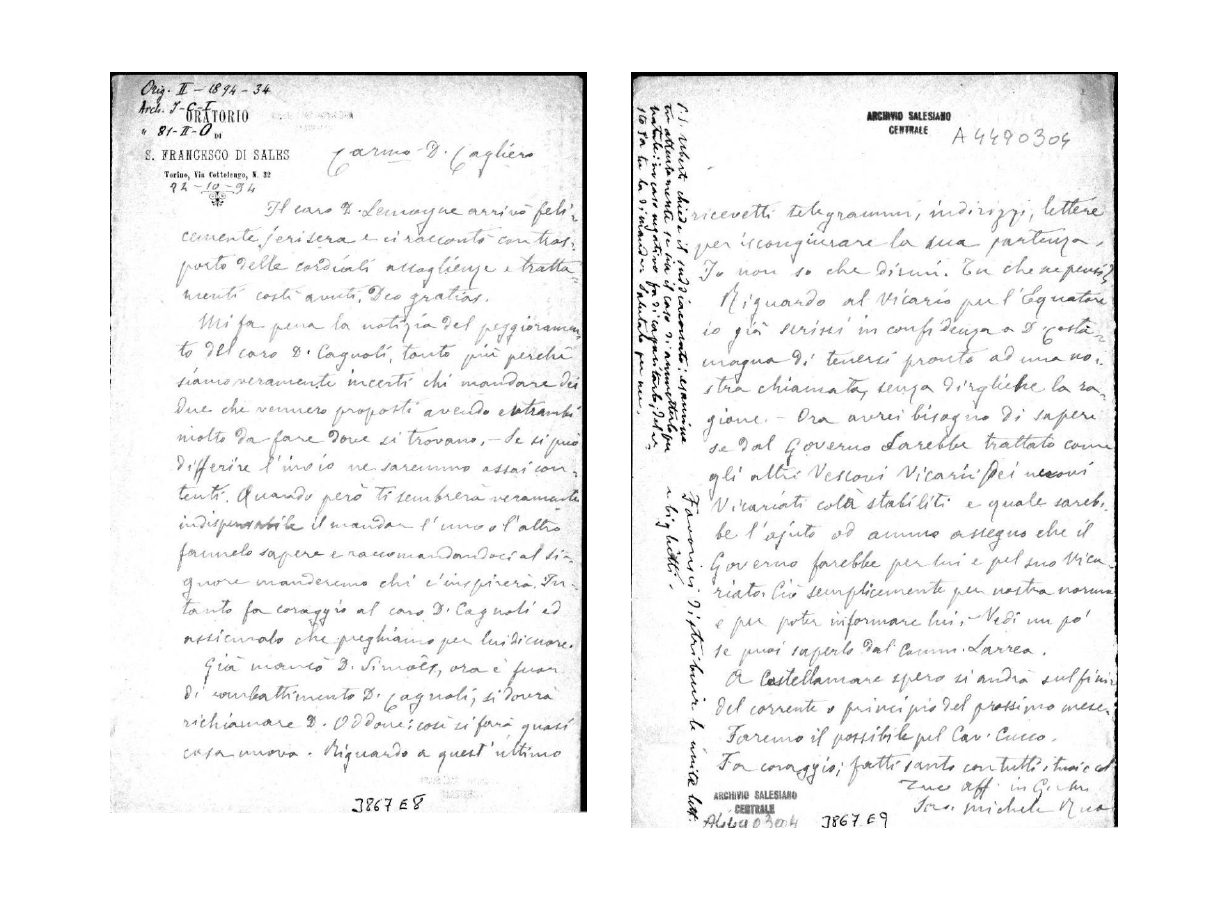 Orig. II - 1894 - 34
Arch. J-C-I
" 81-II-O
ORATORIO
DI
S. FRANCESCO DI SALES
Torino, Via Cottolengo, N. 32
22-10-94
Carmo D. Cagliero
Il caro D. Lemoyne arrivò feli-
cemente jerisera e ci raccontò con tras-
porto delle cordiali accoglienze e tratta-
menti costì avuti. Deo gratias.
Mi fa pena la notizia del peggioramen-
to del caro D. Cagnoli, tanto più perchè
siamo veramente incerti chi mandare dei
due che vennero proposti avendo entrambi
molto da fare dove si trovano. - Se si può
differire l'invio ne saremmo assai con-
tenti. Quando però ti sembrerà veramente
indispensabile il mandar l'uno o l'altro
fannelo sapere e raccomandandoci al Si-
gnore manderemo chi c'inspirerà. In-
tanto fa coraggio al caro D. Cagnoli ed
assicuralo che preghiamo per lui di cuore.
Già mancò D. Simoês, ora è fuor
di combattimento D. Cagnoli, si dovrà
richiamare D. Oddone: così si farà quasi
casa nuova. Riguardo a quest'ultimo
J867 E8
ARCHIVIO SALESIANO
CENTRALE
A4490304
ricevetti telegrammi, indirizzi, lettere
per iscongiurare la sua partenza.
Io non so che dirmi. Tu che ne pensi?
Riguardo al Vicario per l'Equatore
io già scrissi in confidenza a D. Costa-
magna di tenersi pronto ad una no-
stra chiamata, senza dirgliene la ra-
gione. - Ora avrei bisogno di sapere
se dal Governo sarebbe trattato come
gli altri Vescovi Vicarii dei
Vicariati colà stabiliti e quale sareb-
be l'ajuto od annuo assegno che il
Governo farebbe per lui e pel suo Vica-
riato. Ciò semplicemente per nostra norma
e per poter informare lui. Vedi un po'
se puoi saperlo dal Comm. Larrea.
A Castellamare spero si andrà sul finir
del corrente o principio del prossimo mese.
Faremo il possibile pel Cav. Cucco.
Fa coraggio; fatti santo con tutti i tuoi e col
Tuo aff. in G.
Sac. Michele Rua
chiede il suddiaconato: esamina
tu attentamente se sia il caso di ammetterlo
in caso negativo fa di
Salutalo per me.
Favorisci distribuire le unite lett.
e biglietti.
ARCHIVIO SALESIANO
CENTRALE
A4490304
J867 E9